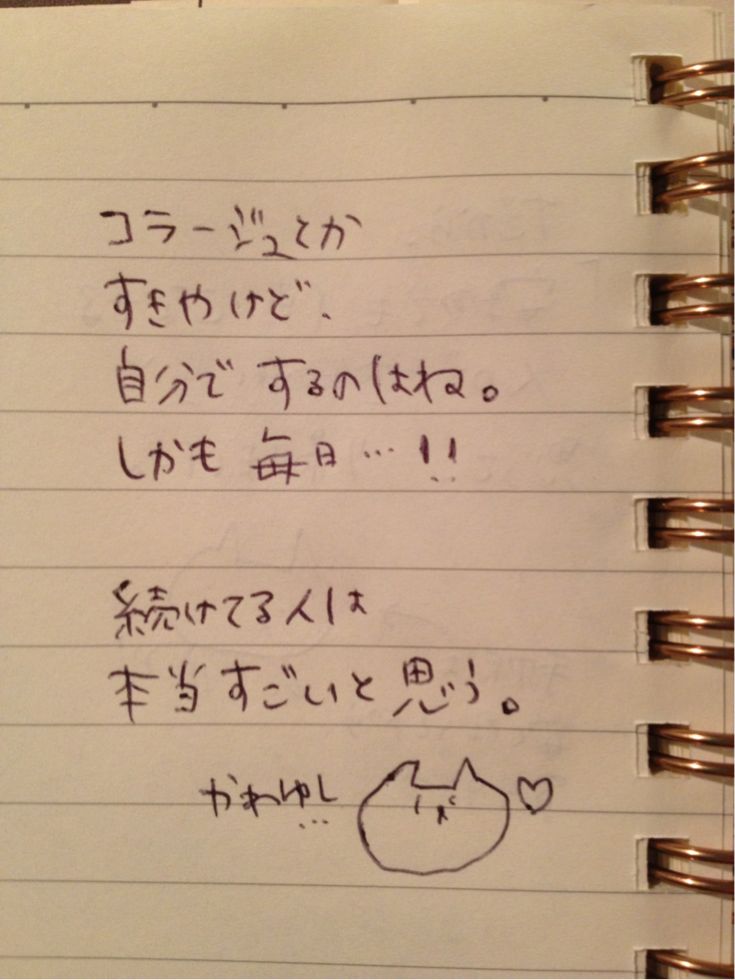 コラージュとか
すきやけど、
自分でするのはね。
しかも毎日…!!
続けてる人は
本当すごいと思う。
かわゆし…